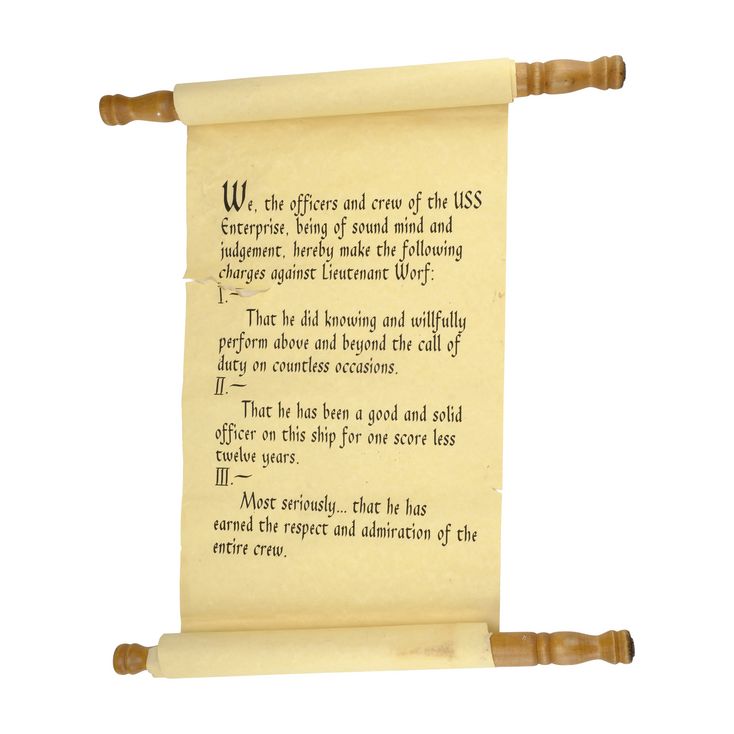 We, the officers and crew of the USS
Enterprise, being of sound mind and
judgement, hereby make the following
charges against Lieutenant Worf:
I.~
That he did knowing and willfully
perform above and beyond the call of
duty on countless occasions.
II.~
That he has been a good and solid
officer on this ship for one score less
twelve years.
III.~
Most seriously... that he has
earned the respect and admiration of the
entire crew.